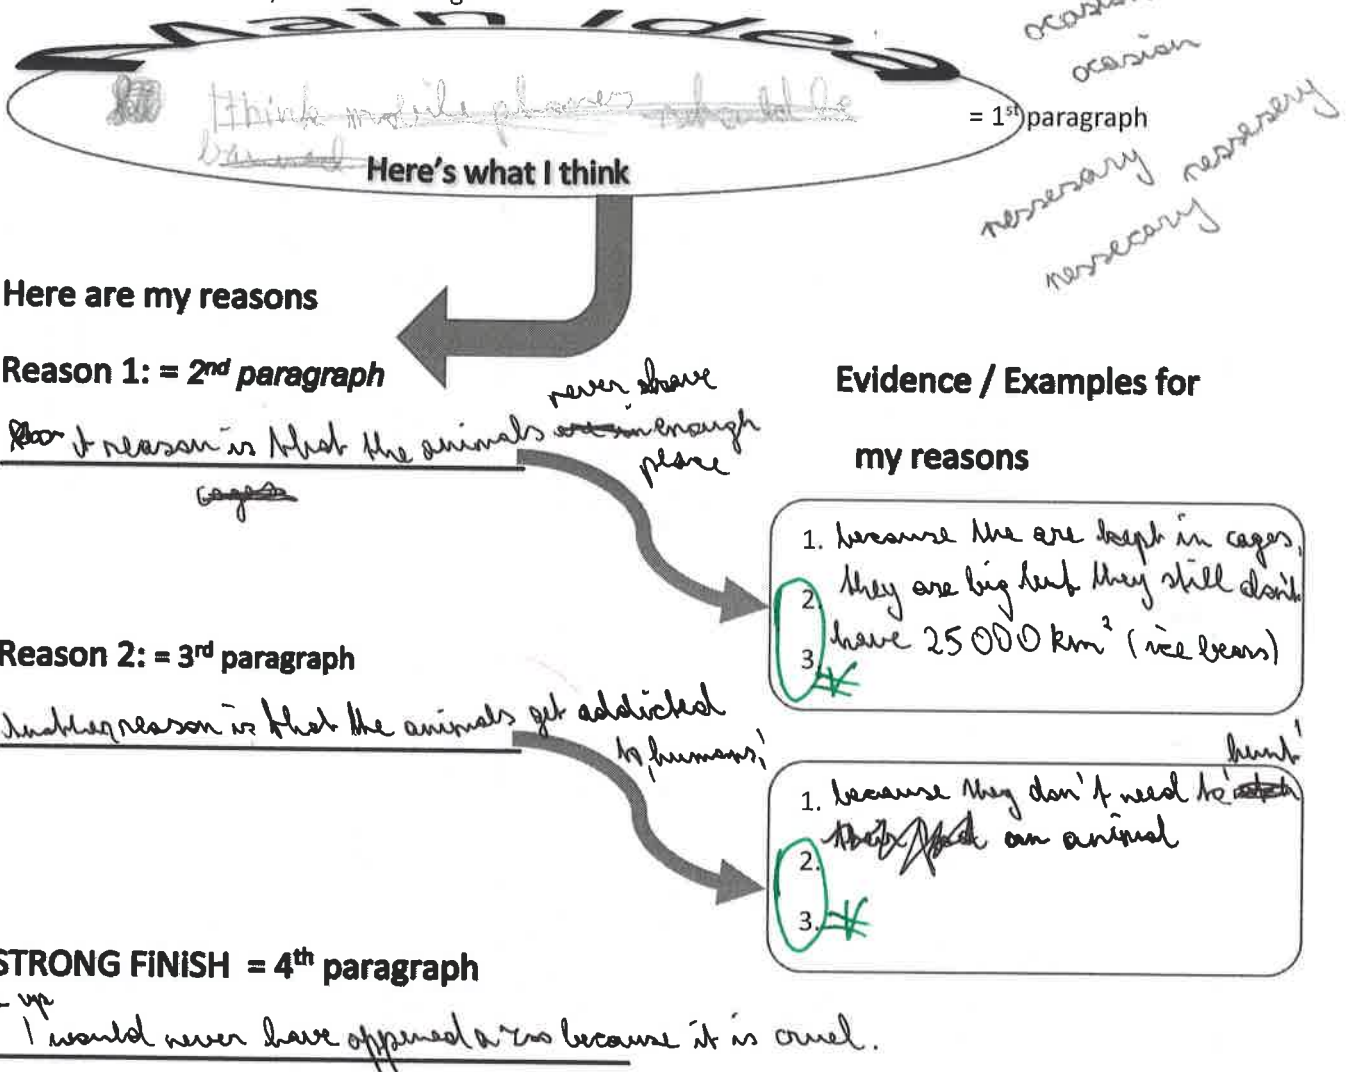 Main Idea
ocasion
I think mobile phones should be
banned
= 1st paragraph
Here's what I think
nessesary nessesery
nessecary
Here are my reasons
Reason 1: = 2nd paragraph
never have
A reason is that the animals enough
place
cages
Evidence / Examples for
my reasons
1. because the are kept in cages,
2. they are big but they still don't
have 25000 km² (ice bears)
3.
Reason 2: = 3rd paragraph
Another reason is that the animals get addicted
to humans,
hunt
1. because they don't need to
an animal
2.
3.
STRONG FINISH = 4th paragraph
up
I would never have oppened a zoo because it is cruel.